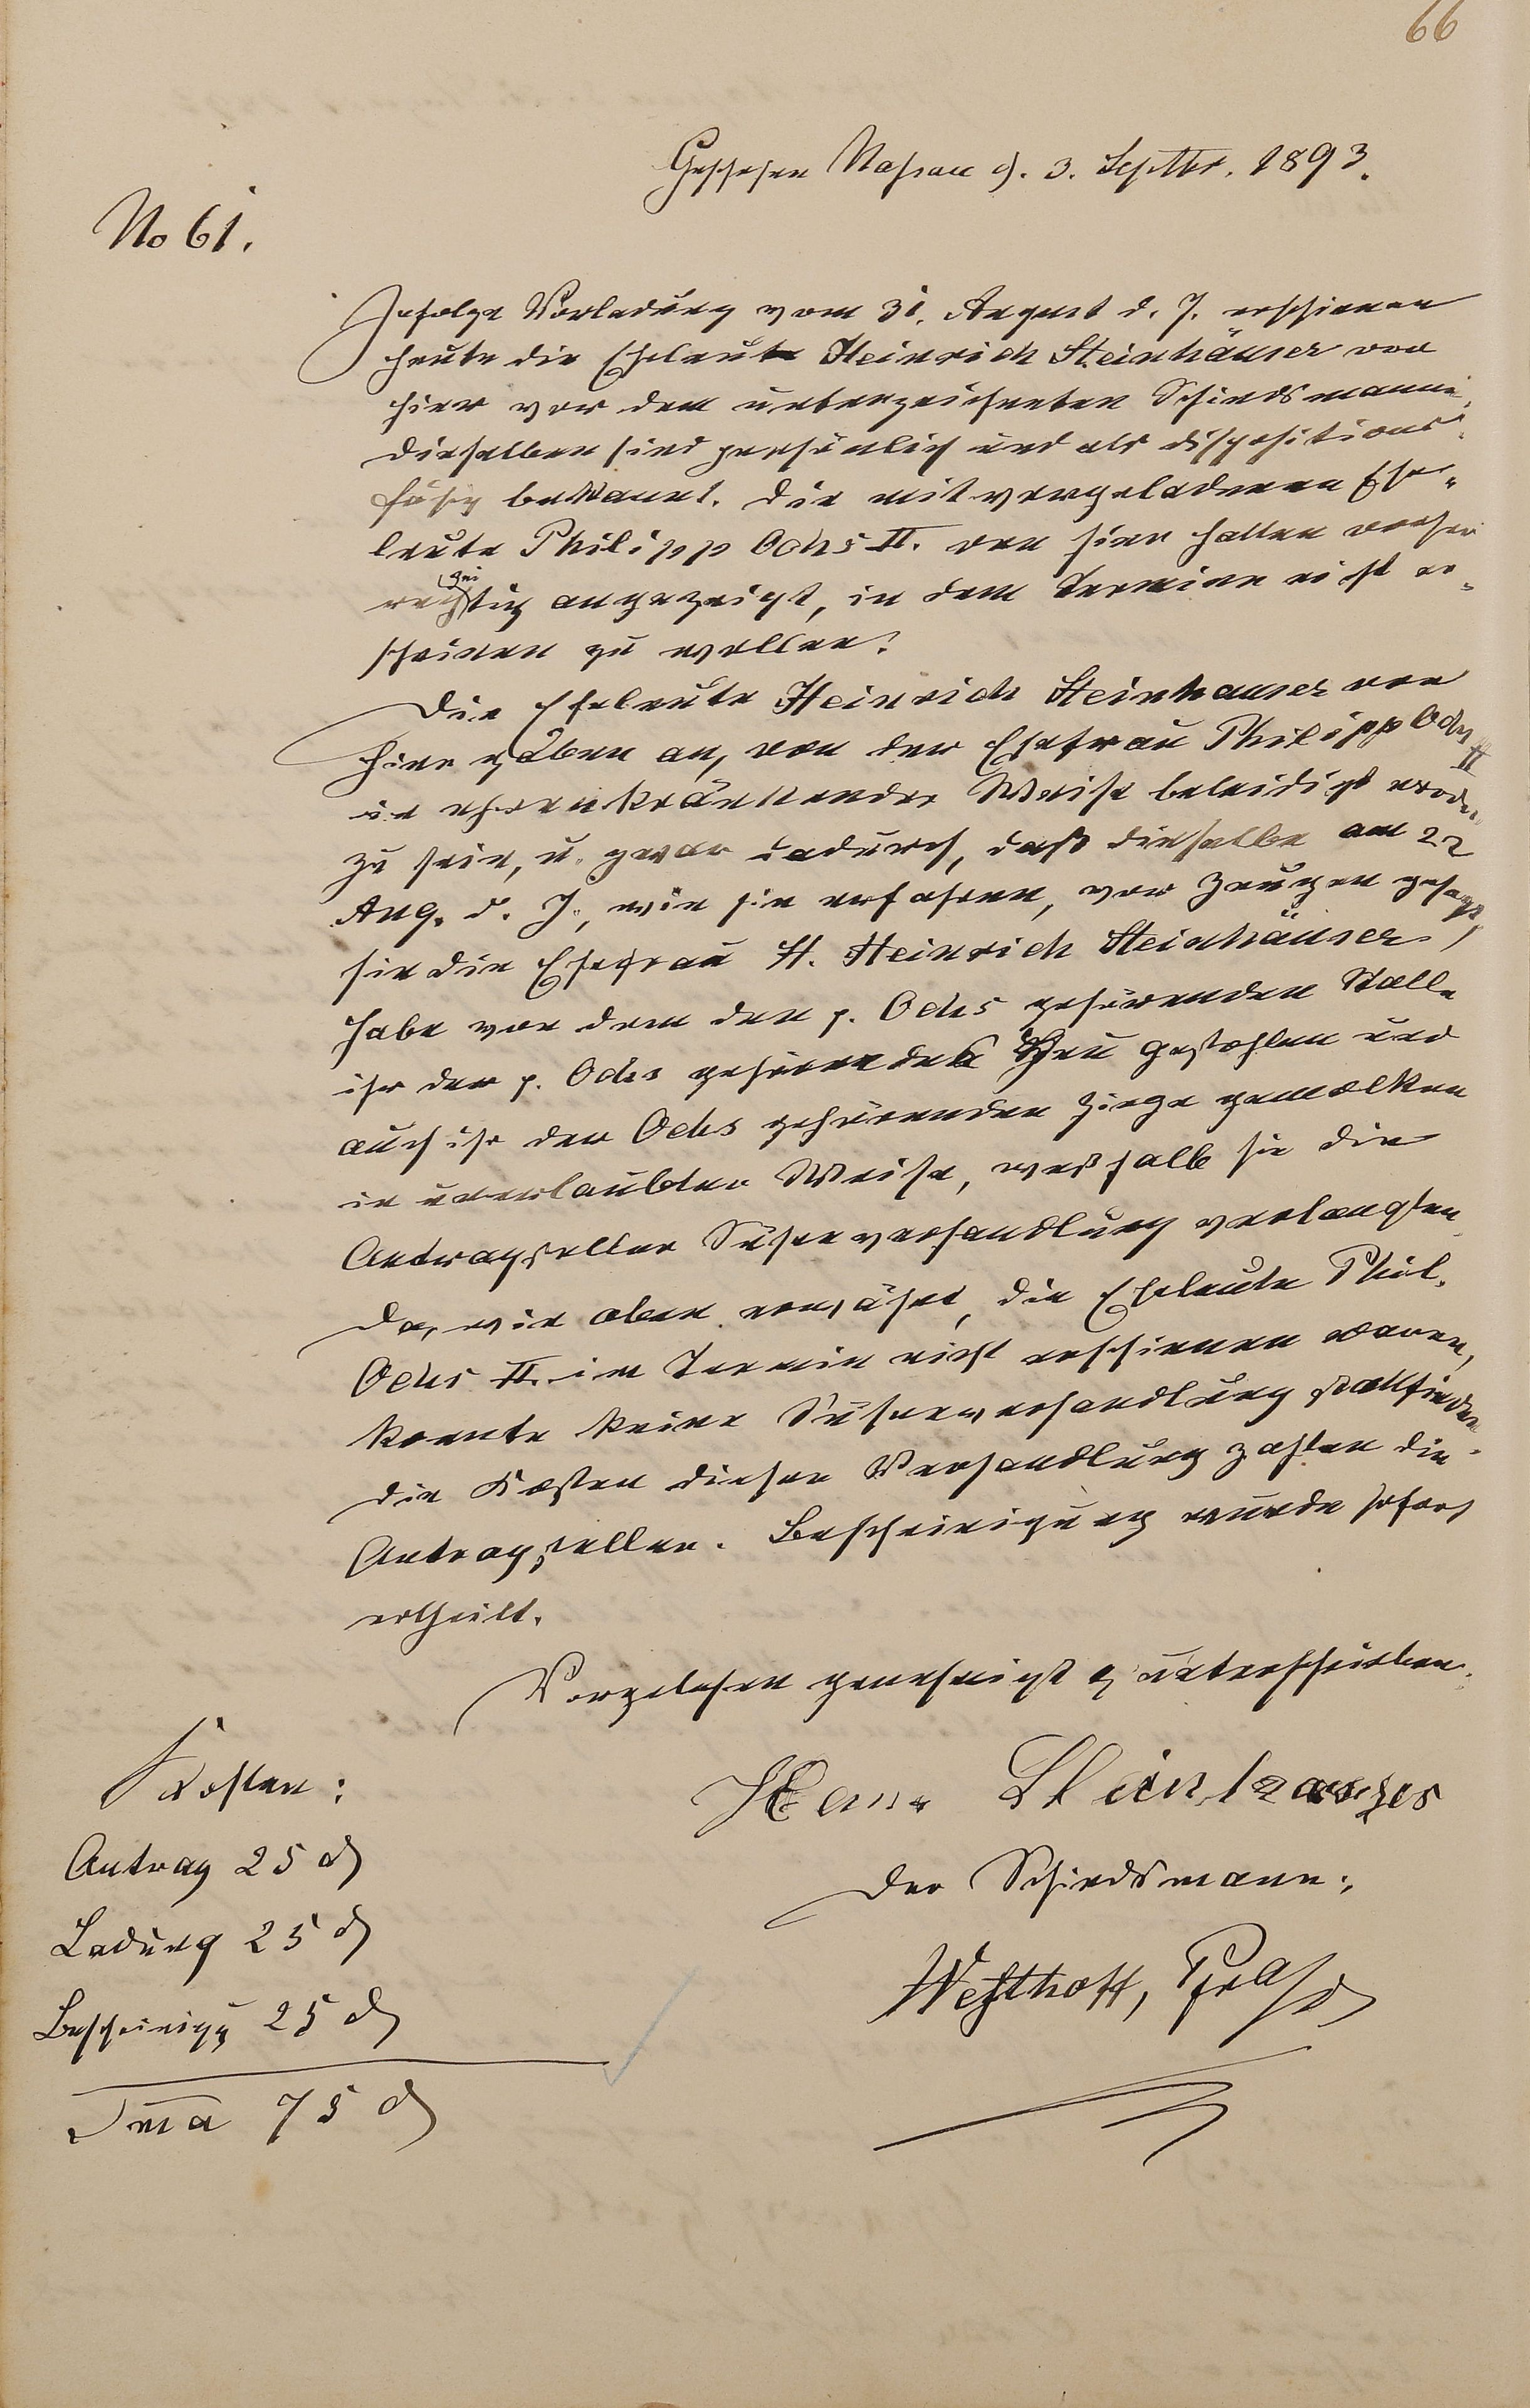 66
Geschehen Nassau d. 3. Septbr. 1893.
No 61.
Infolge Vorladung vom 31. August d. J. erschienen
heute die Eheleute Heinrich Steinhäuser von
hier vor dem unterzeichneten Schiedsmanne,
dieselben sind persönlich und als dispositions-
fähig bekannt. Die mit vorgeladenen Ehe-
leute Philipp Ochs II. von hier hatten vorher
rechtzeitig angezeigt, in dem Termine nicht er-
scheinen zu wollen.
Die Eheleute Heinrich Steinhauser von
hier gaben an, von der Ehefrau Philipp Ochs II
in ehrenkränkender Weise beleidigt worden
zu sein, u. zwar dadurch, daß dieselbe am 22
Aug. d. J., wie sie erfahren, vor Zeugen gesagt,
sie die Ehefrau H. Heinrich Steinhäuser,
habe von dem den p. Ochs gehörenden Stalle
ihr der p. Ochs gehörendes Heu gestohlen und
auch ihr der Ochs gehörenden Ziege gemolken
in unerlaubter Weise, weßhalb sie die
Antragsteller Sühneverhandlung verlangten.
Da, wie oben erwähnt, die Eheleute Phil.
Ochs II. im Termin nicht erschienen waren,
konnte keine Sühneverhandlung stattfinden.
Die Kosten dieser Verhandlung zahlen die
Antragsteller. Bescheinigung wurde sofort
ertheilt.
Vorgelesen genehmigt & unterschrieben.
Steinhauser
Der Schiedsmann:
Westhoff,
Kosten:
Antrag 25 ₰
Ladung 25 ₰
Bescheinigg 25 ₰
Sma 75 ₰